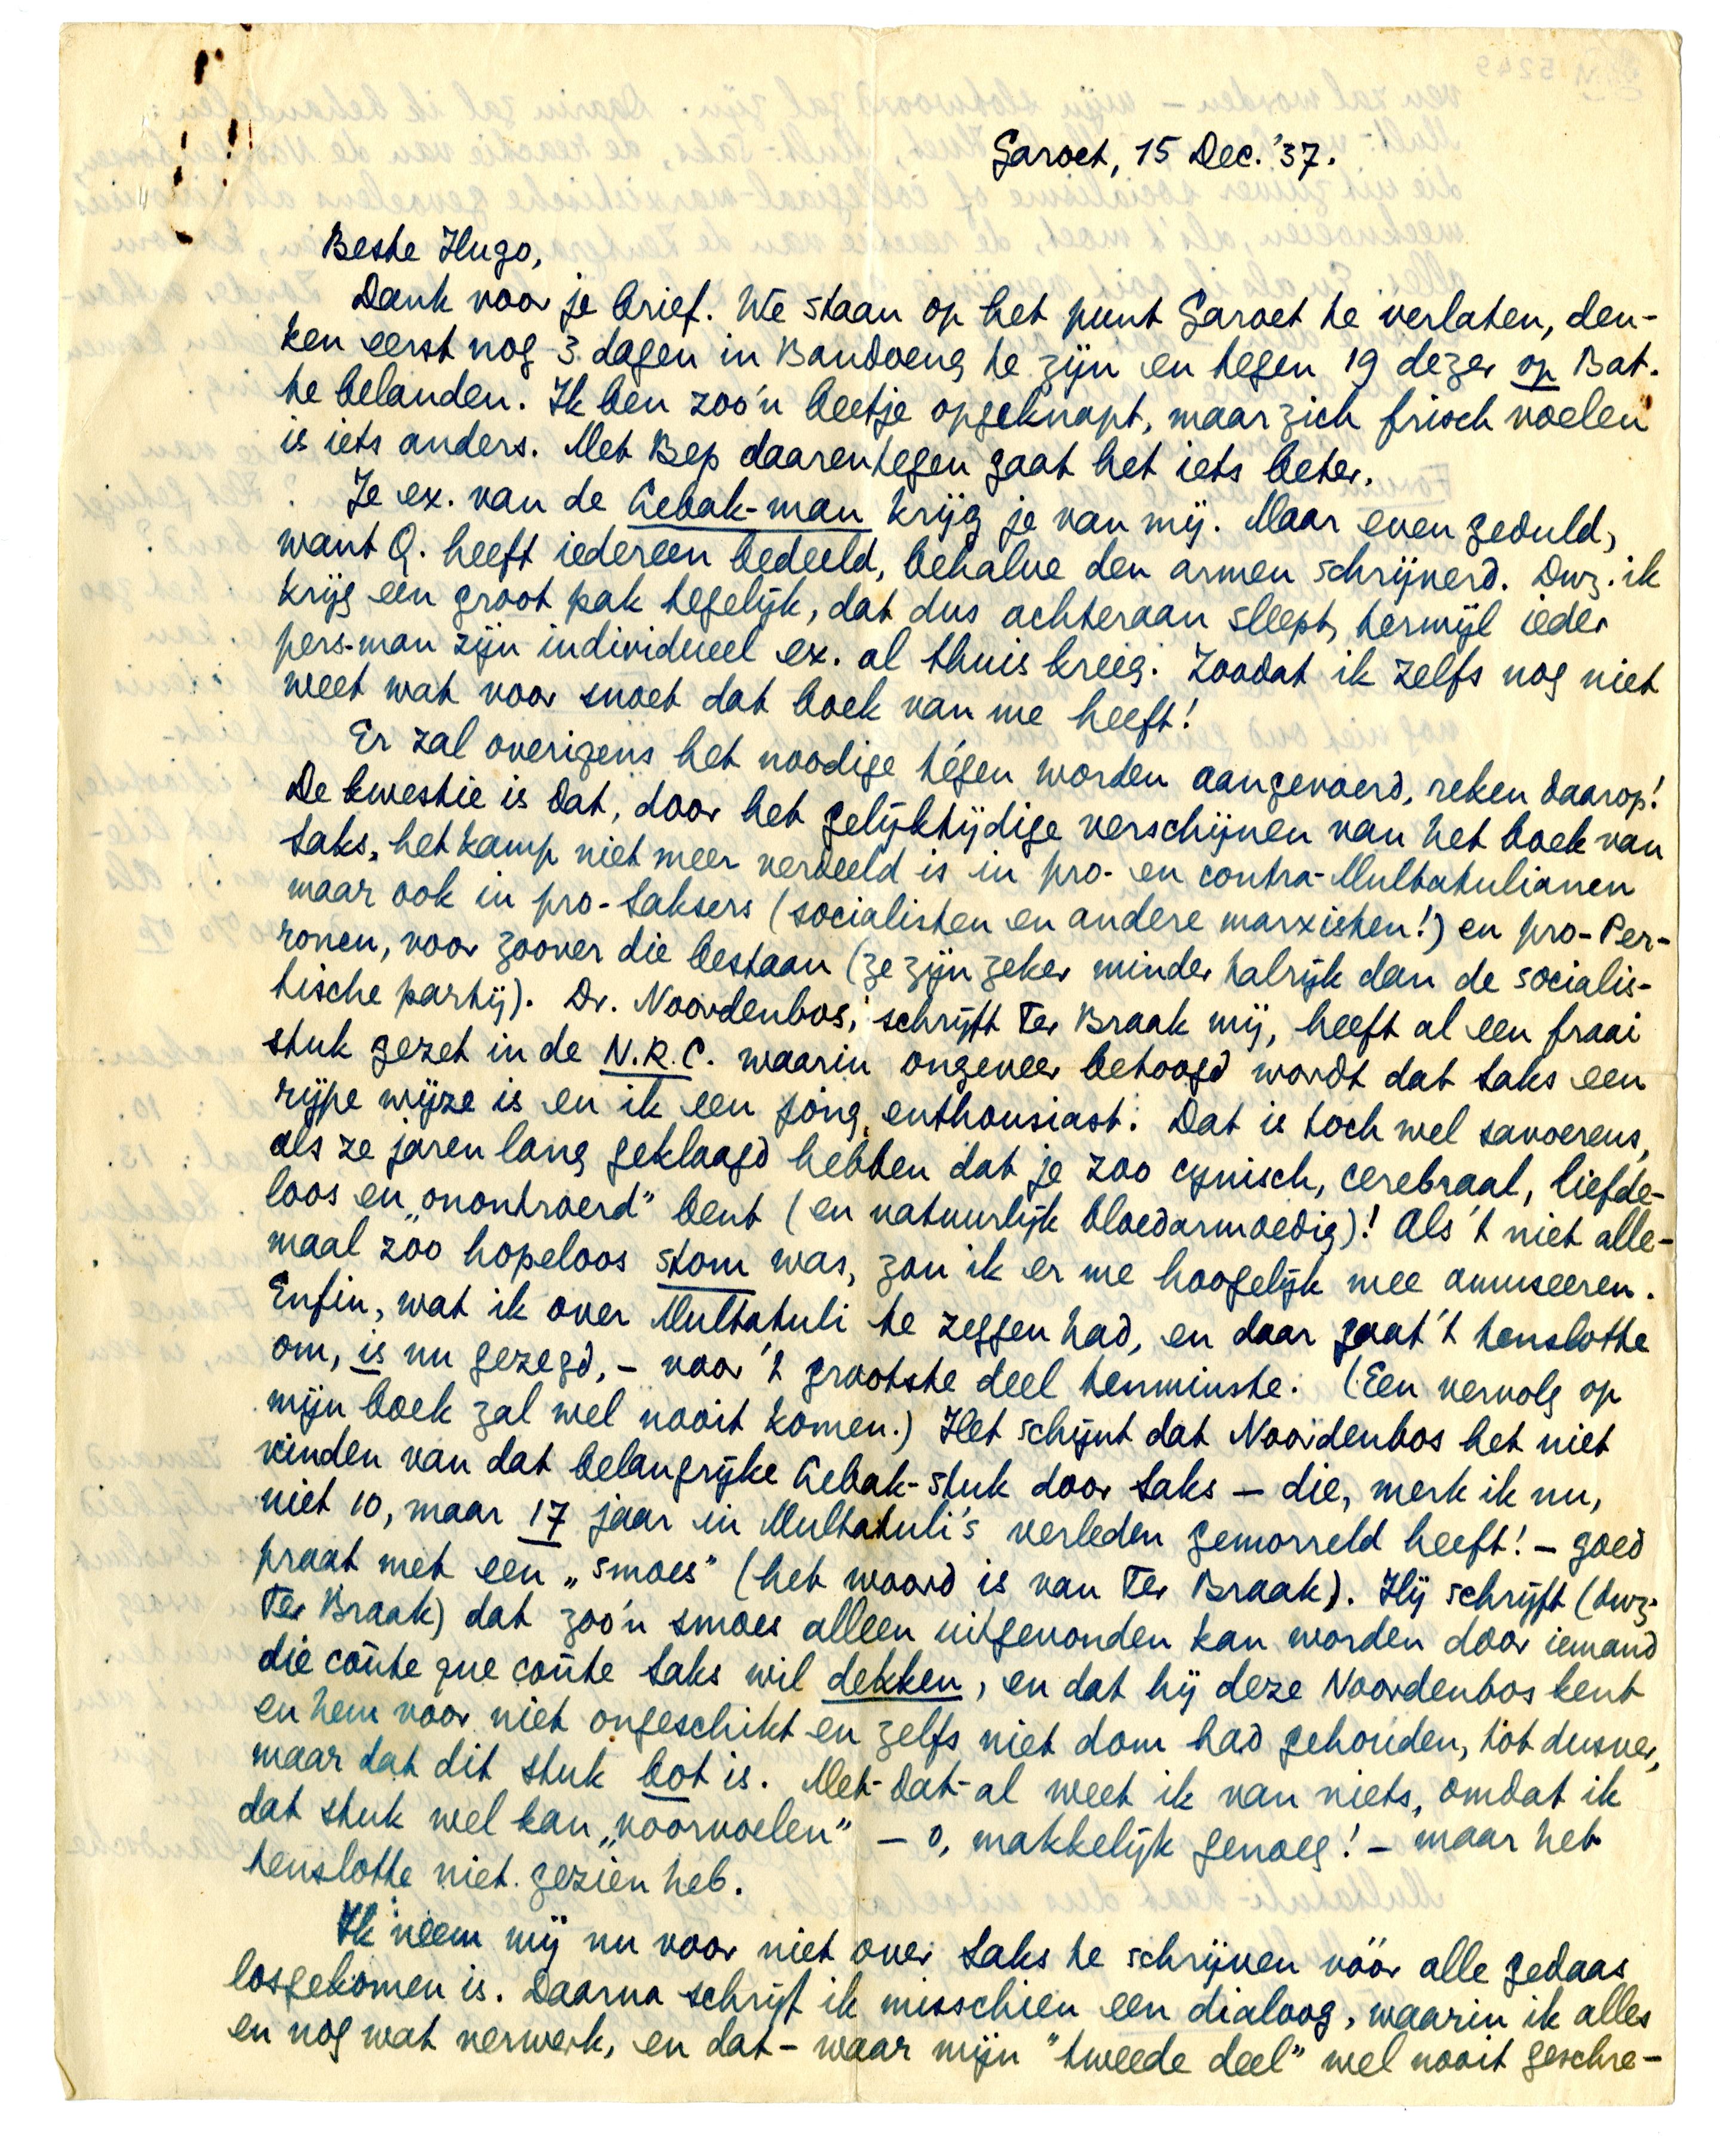 Garoet, 15 Dec. '37.
Beste Hugo,
Dank voor je brief. We staan op het punt Garoet te verlaten, den-
ken eerst nog 3 dagen in Bandoeng te zijn en tegen 19 dezer op Bat.
te belanden. Ik ben zoo'n beetje opgeknapt, maar zich frisch voelen
is iets anders. Met Bep daarentegen gaat het iets beter.
Je ex. van de Lebak-man krijg je van mij. Maar even geduld,
want Q. heeft iedereen bedeeld, behalve den armen schrijverd. Dwz. ik
krijg een groot pak tegelijk, dat dus achteraan sleept, terwijl ieder
pers-man zijn individueel ex. al thuis kreeg. Zoodat ik zelfs nog niet
weet wat voor snoet dat boek van me heeft!
Er zal overigens het noodige tégen worden aangevoerd, reken daarop!
De kwestie is dat, door het gelijktijdige verschijnen van het boek van
Saks, het kamp niet meer verdeeld is in pro- en contra-Multatulianen
maar ook in pro-Saksers (socialisten en andere marxisten!) en pro-Per-
ronen, voor zoover die bestaan (ze zijn zeker minder talrijk dan de socialis-
tische partij). Dr. Noordenbos, schrijft Ter Braak mij, heeft al een fraai
stuk gezet in de N.R.C. waarin ongeveer betoogd wordt dat Saks een
rijpe wijze is en ik een jong enthousiast. Dat is toch wel savoereus,
als ze jaren lang geklaagd hebben dat je zoo cynisch, cerebraal, liefde-
loos en „onontroerd” bent (en natuurlijk bloedarmoedig)! Als 't niet alle-
maal zoo hopeloos stom was, zou ik er me hoogelijk mee amuseeren.
Enfin, wat ik over Multatuli te zeggen had, en daar gaat 't tenslotte
om, is nu gezegd, - voor 't grootste deel tenminste. (Een vervolg op
mijn boek zal wel nooit komen.) Het schijnt dat Noordenbos het niet
vinden van dat belangrijke Lebak-stuk door Saks - die, merk ik nu,
niet 10, maar 17 jaar in Multatuli's verleden gemorreld heeft! - goed
praat met een „smoes” (het woord is van Ter Braak). Hij schrijft (dwz.
Ter Braak) dat zoo'n smoes alleen uitgevonden kan worden door iemand
die coûte que coûte Saks wil dekken, en dat hij deze Noordenbos kent
en hem voor niet ongeschikt en zelfs niet dom had gehouden, tot dusver,
maar dat dit stuk bot is. Met-dat-al weet ik van niets, omdat ik
dat stuk wel kan „voorvoelen” - o, makkelijk genoeg! - maar het
tenslotte niet gezien heb.
Ik neem mij nu voor niet over Saks te schrijven vóór alle gedaas
losgekomen is. Daarna schrijf ik misschien een dialoog, waarin ik alles
en nog wat verwerk, en dat - waar mijn "tweede deel" wel nooit geschre-